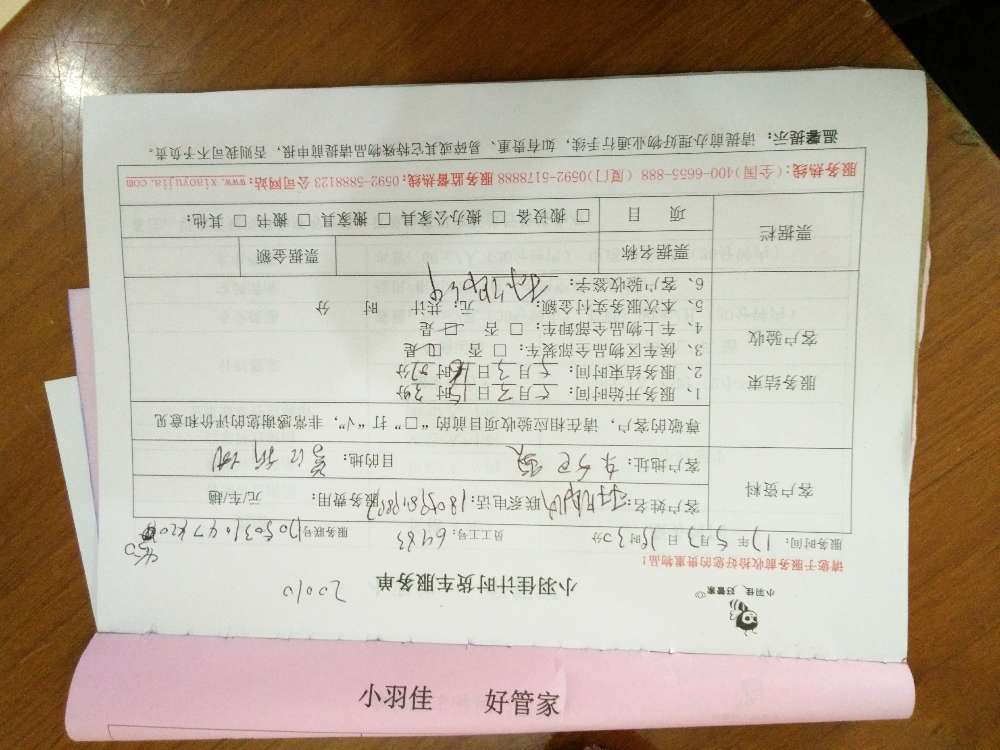 小羽佳 好管家
小羽佳，好管家
小羽佳计时货车服务单 20010
请您于服务前收拾好您的贵重物品！
服务时间：17年5月3日15时30分 员工工号：6483 服务联号
客户资料
客户姓名： 联系电话： 服务费用： 元/车/趟
客户地址： 目的地：
尊敬的客户，请在相应验收项目前的“□”打“√”，非常感谢您的评价和意见
服务结束
客户验收
1、服务开始时间：5月3日15时3分
2、服务结束时间：5月3日16时 分
3、候车区物品全部装车：□ 否 □ 是
4、车上物品全部卸车：□ 否 □ 是
5、本次服务实付金额： 元；共计 时 分
6、客户验收签字：
票据栏
票据名称 票据金额
项 目 □ 搬设备 □ 搬办公家具 □ 搬家具 □ 搬书 □ 其他：
服务热线：(全国)400-6655-888 (厦门)0592-5178888 服务监督热线：0592-5888123 公司网站：www.xiaoyujia.com
温馨提示：请提前办理好物业通行手续，如有贵重、易碎或其它特殊物品请提前申报，否则我司可不予负责。